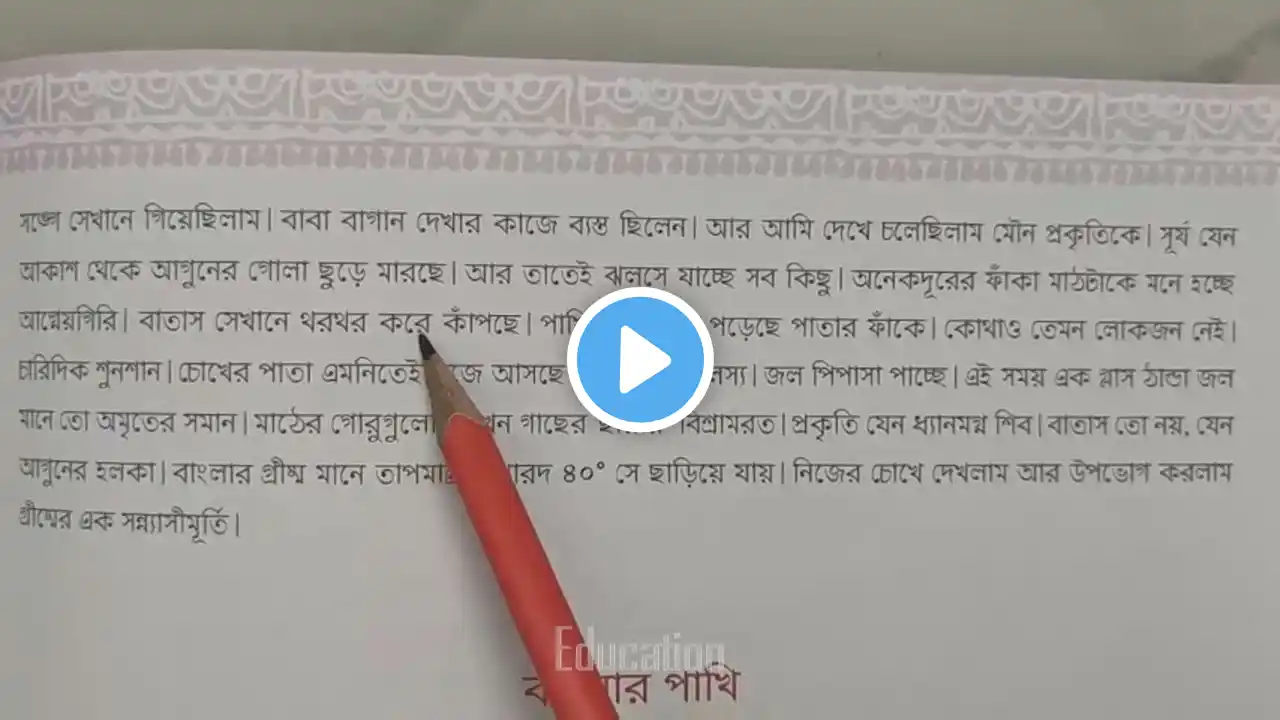 সঙ্গে সেখানে গিয়েছিলাম। বাবা বাগান দেখার কাজে ব্যস্ত ছিলেন। আর আমি দেখে চলেছিলাম মৌন প্রকৃতিকে। সূর্য যেন
আকাশ থেকে আগুনের গোলা ছুড়ে মারছে। আর তাতেই ঝলসে যাচ্ছে সব কিছু। অনেকদূরের ফাঁকা মাঠটাকে মনে হচ্ছে
আগ্নেয়গিরি। বাতাস সেখানে থরথর করে কাঁপছে। পড়েছে পাতার ফাঁকে। কোথাও তেমন লোকজন নেই।
চারিদিক শুনশান। চোখের পাতা এমনিতেই আসছে জল পিপাসা পাচ্ছে। এই সময় এক গ্লাস ঠান্ডা জল
মানে তো অমৃতের সমান। মাঠের গোরুগুলো গাছের বিশ্রামরত। প্রকৃতি যেন ধ্যানমগ্ন শিব। বাতাস তো নয়, যেন
আগুনের হলকা। বাংলার গ্রীষ্ম মানে ৪০° সে ছাড়িয়ে যায়। নিজের চোখে দেখলাম আর উপভোগ করলাম
গ্রীষ্মের এক সন্ন্যাসীমূর্তি।
Education
পাখি